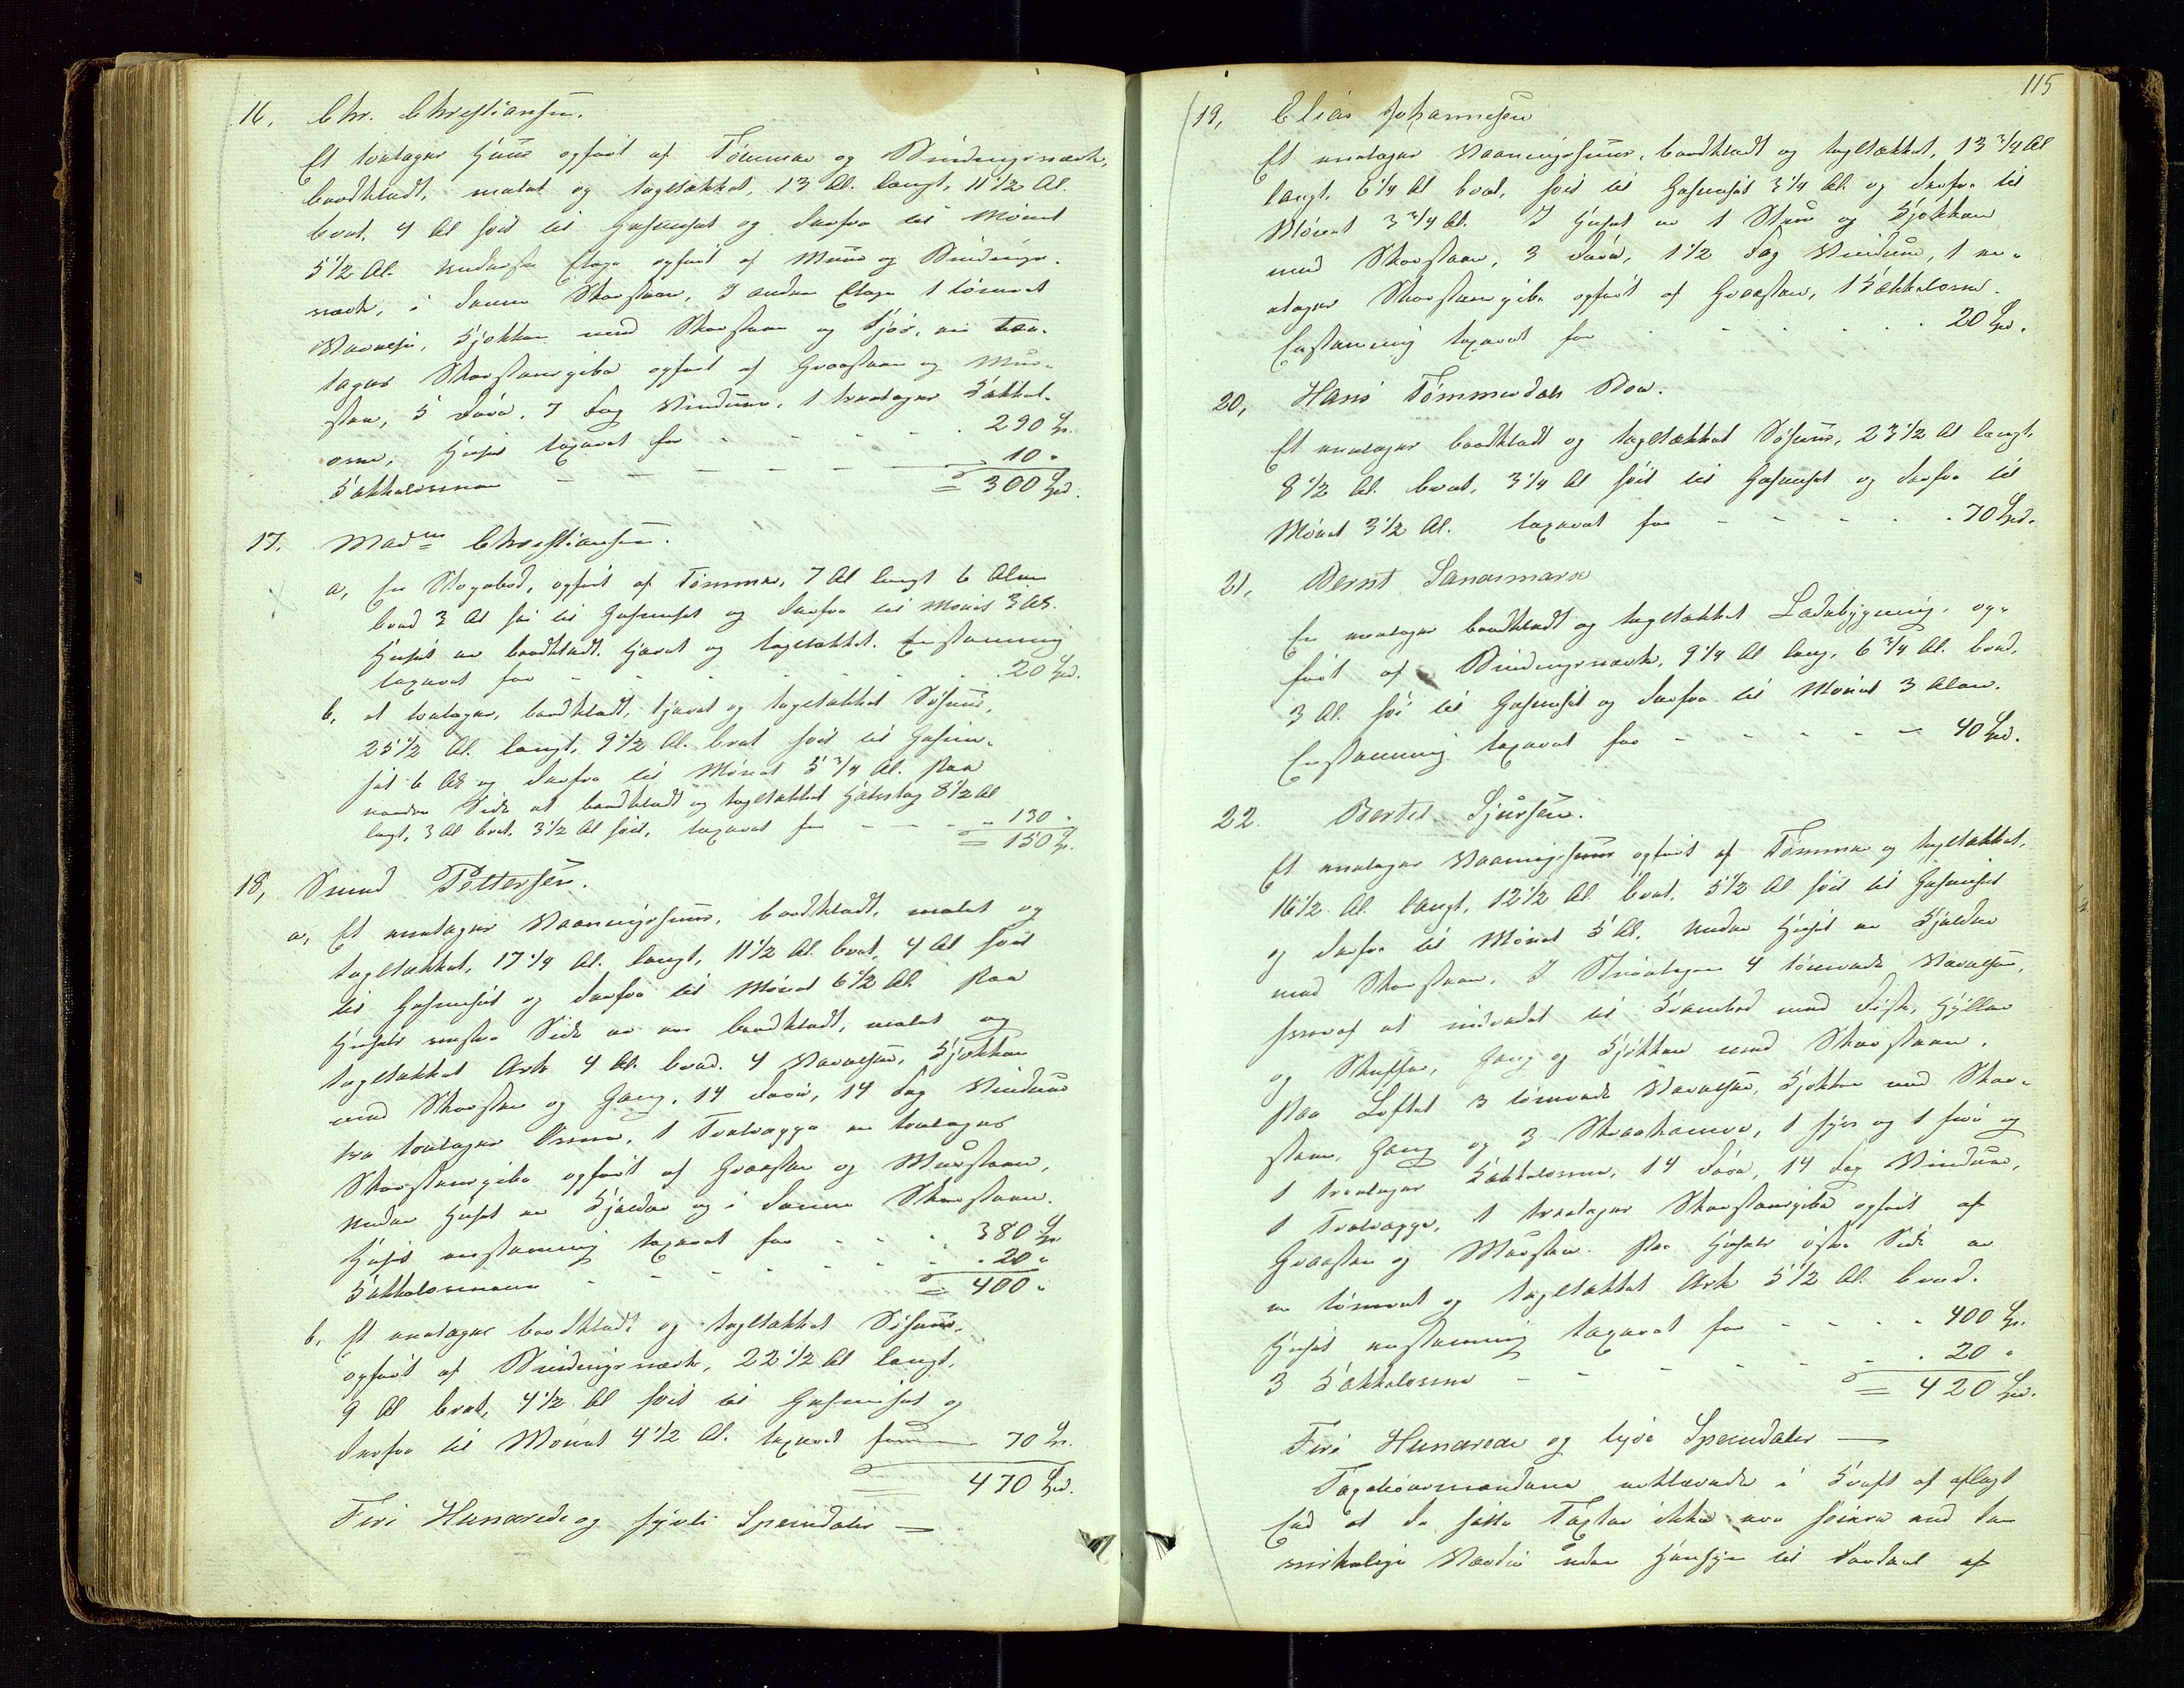 16, Chr. Christiansen.
Et toetages Huus opført af Tømmer og Bindingsværk,
bordklædt, malet og tagstækket, 13 Al. langt, 11 1/2 Al.
bredt, 4 Al høit til Gesimset og derfra til Mønet
5 1/2 Al. nederste Etage opført af Muur og Bindings-
værk, i denne Skorsteen, I anden Etage 1 tømret
Værelse, Kjøkken med Skorsteen og Spis, en tre-
etages Skorsteenspibe opført af Graasteen og Muur-
steen, 5 Døre, 7 Fag Vinduer, 1 treetages Kakkel-
ovn, Huset taxeret for - - - - 290 Spd.
Kakkelovnen - - - - - 10 "
= 300 Spd.
17. Mad. Christiansen.
a, En Skogebod, opført af Tømmer, 7 Al langt 6 Alen
bred 3 Al høi til Gesimset og derfra til Mønet 3 Al.
Huset er bordklædt, tjæret og tagtækket. Enstemmig
taxeret for - - - - - 20 Spd.
b, et toetages, bordklædt, tjæret og tagtækket Søhuus,
25 1/2 Al. langt, 9 1/2 Al. bredt høit til Gesim-
set 6 Al og derfra til Mønet 5 3/4 Al. Paa
nordre Side et bordklædt og tagtækket Halvtag 8 1/2 Al
langt, 3 Al bredt, 3 1/2 Al høit, taxeret for - - - 130 "
= 150 Spd.
18, Svend Pettersen.
a, Et eenetages Vaaningshuus, bordklædt, malet og
tagtækket, 17 1/4 Al. langt, 11 1/2 Al. bredt, 4 Al høit
til Gesimset og derfra til Mønet 6 1/2 Al. Paa
Husets vestre Side er en bordklædt, malet og
tagtækket Ark 4 Al. bred. 4 Værelser, Kjøkken
med Skorsteen og Gang, 14 Døre, 14 Fag Vinduer
tre toetages Ovne, 1 Toetrappe en toetages
Skorsteenspibe opført af Graasteen og Muursteen,
Under Huset er Kjælder og i denne Skorsteen.
Huset enstemmig taxeret for - - - 380 Spd.
Kakkelovnene - - - - - 20 "
= 400 "
b, Et eenetages bordklædt og tagtækket Søhuus,
opført af Bindingsværk, 22 1/2 Al langt,
9 Al bredt, 4 1/2 Al høit til Gesimset og
derfra til Mønet 4 1/2 Al. taxeret for 70 Spd.
470 Spd.
Fire Hundrede og sytti Speciedaler —
115
19, Elias Johannesen
Et eenetages Vaaningshuus, bordklædt og tagtækket, 13 3/4 Al
langt, 6 1/4 Al bredt, høit til Gesimset 3 1/4 Al. og derfra til
Mønet 3 3/4 Al. I Huset er 1 Stue og Kjøkken
med Skorsteen, 3 Døre, 1 1/2 Fag Vinduer, 1 een-
etages Skorsteenspibe opført af Graasteen, 1 Kakkelovn.
Enstemmig taxeret for - - - - 20 Spd.
20, Hans Tømmerdals Boe.
Et eenetages bordklædt og tagtækket Søhuus, 23 1/2 Al langt,
8 1/2 Al. bredt, 3 1/4 Al høit til Gesimset og derfra til
Mønet 3 1/2 Al. taxeret for - - - - 70 Spd.
21, Bernt Sandsmark
En eenetages bordklædt og tagtækket Ladebygning, op-
ført af Bindingsværk, 9 1/4 Al lang, 6 3/4 Al. bred,
3 Al. høi til Gesimset og derfra til Mønet 3 Alen.
Enstemmig taxeret for - - - - - 40 Spd.
22. Bertel Sjursen.
Et eenetages Vaaningshuus opført af Tømmer og tagtækket,
16 1/2 Al. langt, 12 1/2 Al. bredt, 5 1/2 Al høit til Gesimset
og derfra til Mønet 5 Al. Under Huset er Kjælder
med Skorsteen, I Stueetagen 4 tømrede Værelser,
hvoraf et indredet til Krambod med Disk, Hylder
og Skuffer, Gang og Kjøkken med Skorsteen.
Paa Loftet 3 tømrede Værelser, Kjøkken med Skor-
steen, Gang og 3 Skraakamre, 1 og 1 og
1 treetages Kakkelovn, 14 Døre, 14 Fag Vinduer,
1 Toetrappe, 1 treetages Skorsteenspibe opført af
Graasteen og Muursteen. Paa Husets østre Side er
en tømret og tagtækket Ark 5 1/2 Al. bred.
Huset enstemmig taxeret for - - - - 400 Spd.
3 Kakkelovne - - - - - 20 "
= 420 Spd.
Fire Hundrede og tyve Speciedaler —
Taxationsmændene erklærede i Kraft af aflagt
Eed at de satte Taxter ikke ere høiere end den
virkelige Værdie uden Hensyn til Værdien af